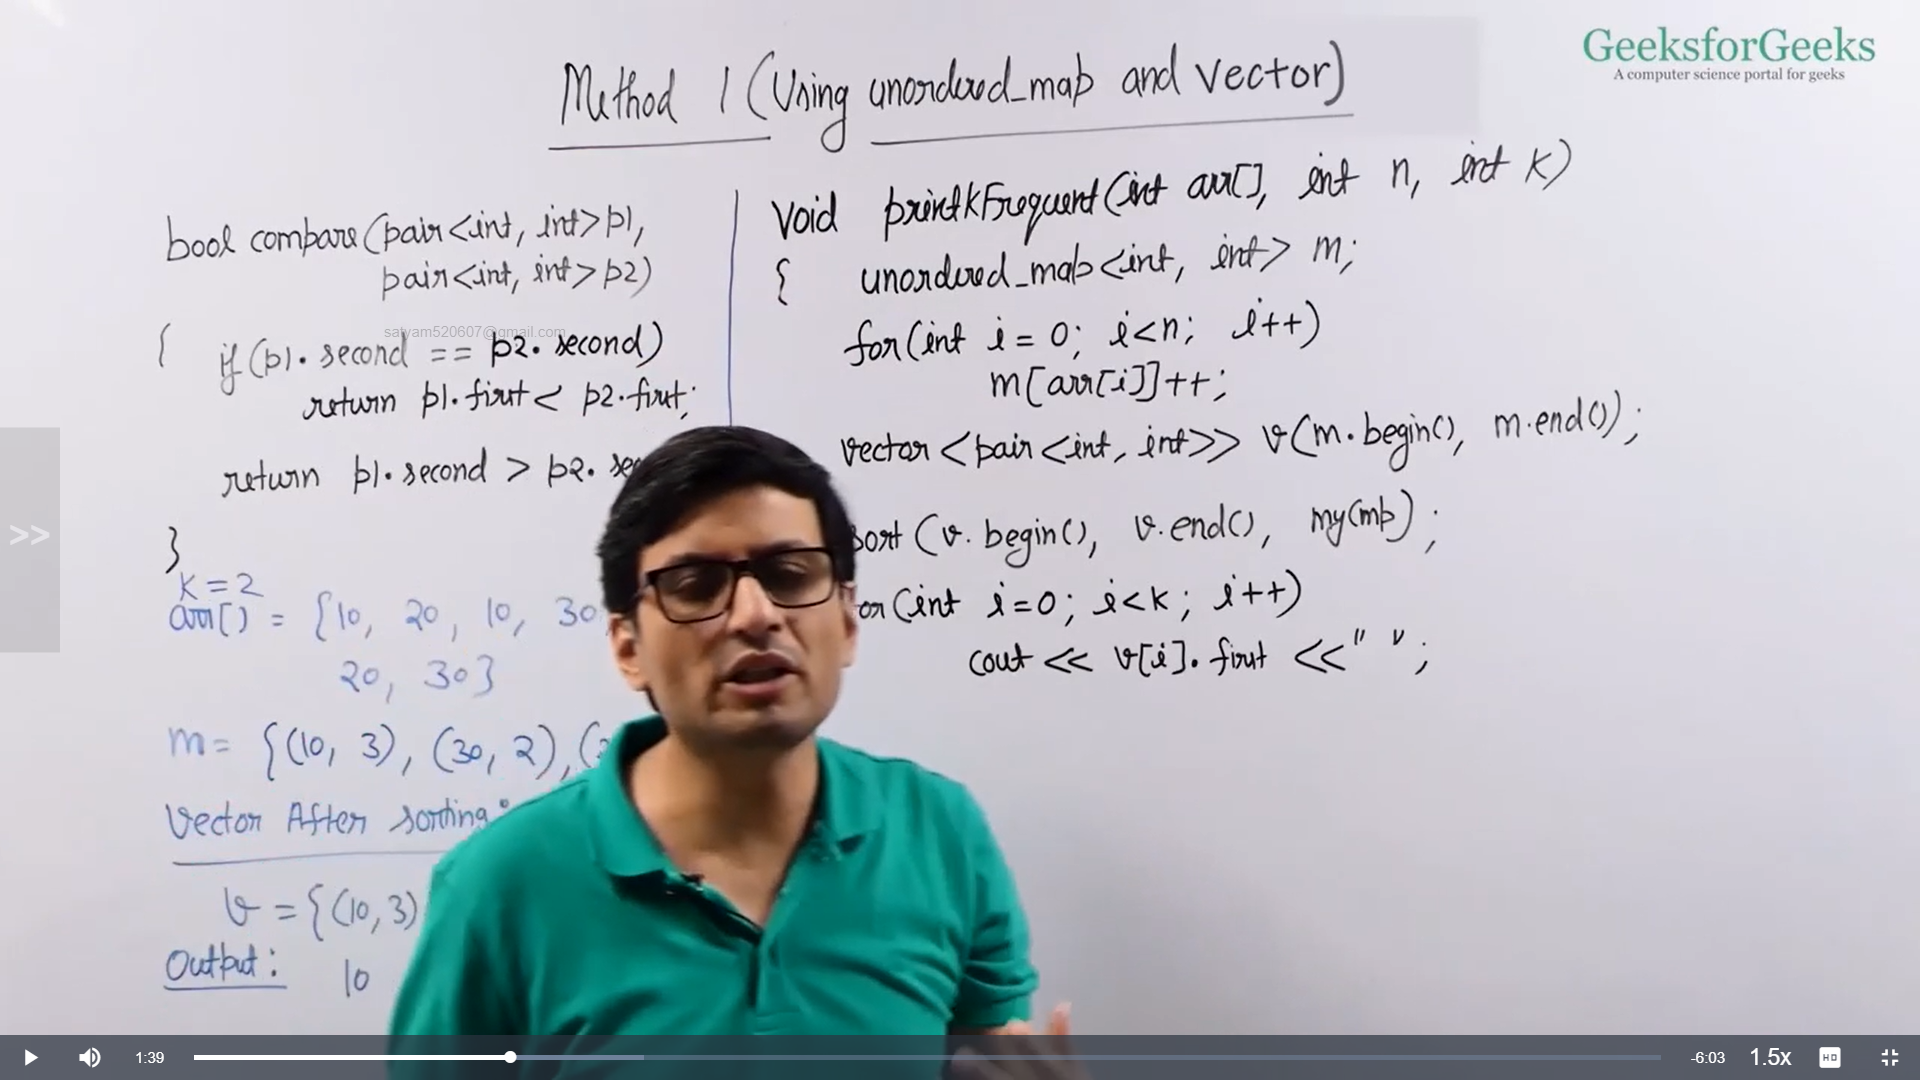 GeeksforGeeks
A computer science portal for geeks
Method 1 (Using unordered_map and vector)
bool compare(pair<int, int>p1,
pair<int, int>p2)
{ if(p1.second == p2.second)
return p1.first < p2.first;
return p1.second > p2.
}
satyam520607@gmail.com
k=2
arr[] = {10, 20, 10, 30,
20, 30}
m= {(10, 3), (30, 2),
Vector After sorting:
v = {(10,3)
Output: 10
void printkFrequent(int arr[], int n, int k)
{ unordered_map<int, int> m;
for(int i = 0; i<n; i++)
m[arr[i]]++;
vector<pair<int, int>> v(m.begin(), m.end());
sort(v.begin(), v.end(), mycmp);
for(int i=0; i<k; i++)
cout << v[i].first <<" ";
>>
1:39
-6:03
1.5x
HD